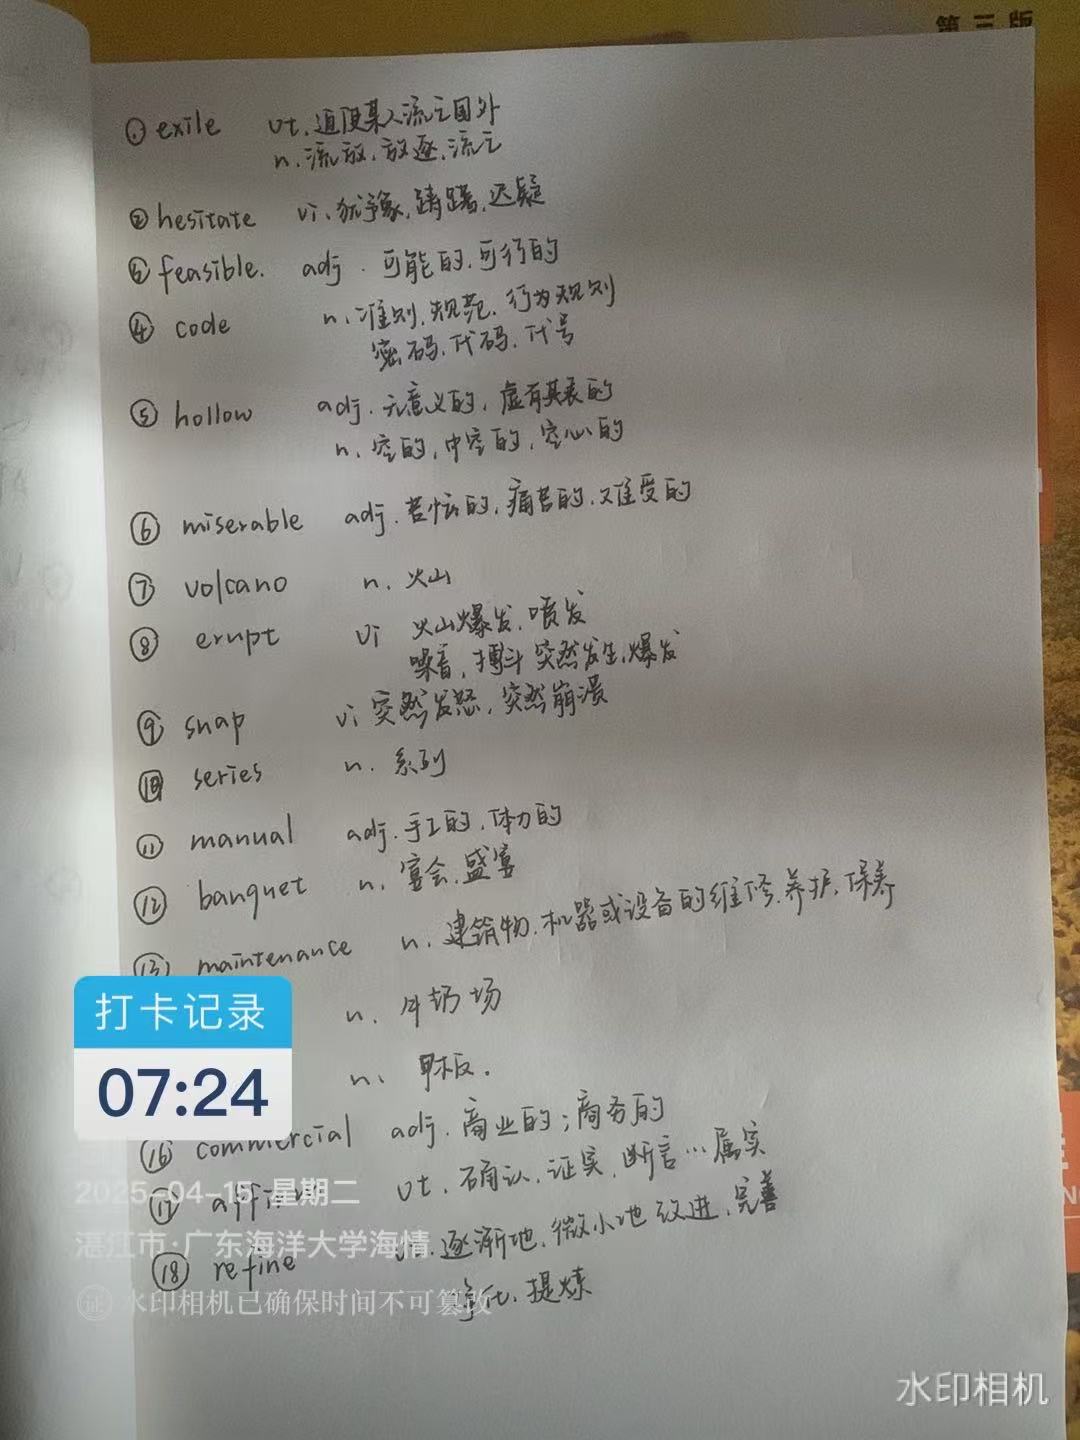 第三版
① exile vt. 迫使某人流亡国外
n. 流放, 放逐, 流亡
② hesitate vi. 犹豫, 踌躇, 迟疑
③ feasible. adj. 可能的, 可行的
④ code n. 准则, 规范, 行为规则
密码, 代码, 代号
⑤ hollow adj. 无意义的, 虚有其表的
n. 空的, 中空的, 空心的
⑥ miserable adj. 苦恼的, 痛苦的, 难受的
⑦ volcano n. 火山
⑧ erupt vi 火山爆发, 喷发
噪音, 搏斗 突然发生, 爆发
⑨ snap vi 突然发怒, 突然崩溃
⑩ series n. 系列
⑪ manual adj. 手工的, 体力的
⑫ banquet n. 宴会, 盛宴
⑬ maintenance n. 建筑物, 机器或设备的维修, 养护, 保养
n. 牛奶场
n. 甲板.
打卡记录
07:24
⑯ commercial adj. 商业的; 商务的
⑰ affirm vt. 确认, 证实, 断言…属实
2025-04-15 星期二
湛江市·广东海洋大学海情
⑱ refine vt. 逐渐地, 微小地改进, 完善
净化, 提炼
证 水印相机已确保时间不可篡改
水印相机